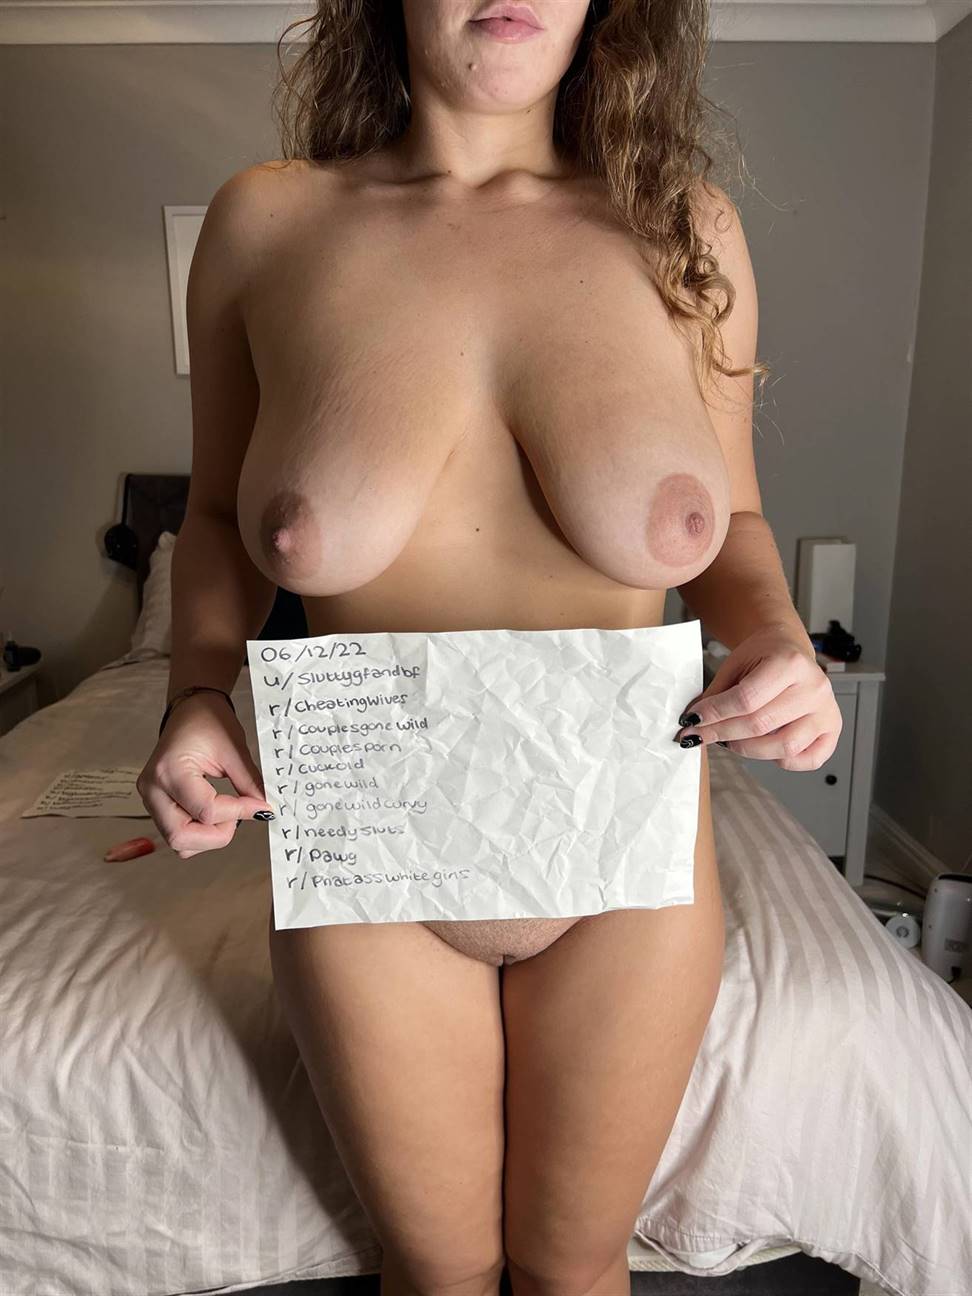 06/12/22
u/Sluttygfandbf
r/CheatingWives
r/Couplesgonewild
r/Couplesporn
r/Cuckold
r/gonewild
r/gonewildcurvy
r/needysluts
r/pawg
r/Phatasswhitegirls